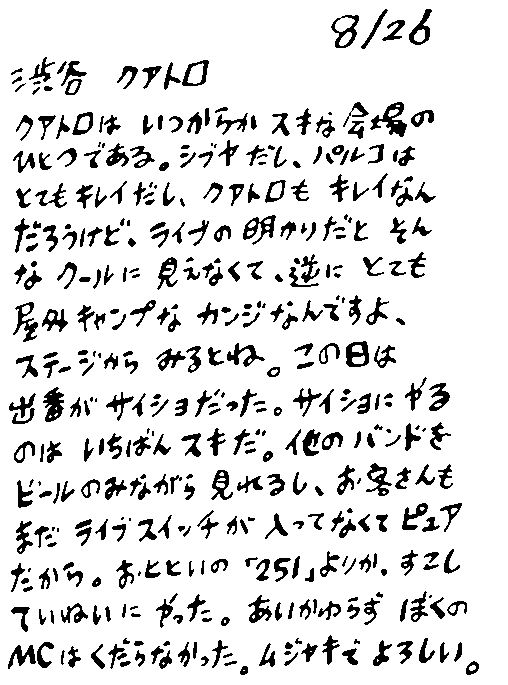 8/26
渋谷 クアトロ
クアトロは いつからか スキな会場の
ひとつである。シブヤだし、パルコは
とてもキレイだし、クアトロも キレイなん
だろうけど、ライブの明かりだと そん
な クールに 見えなくて、逆に とても
屋外キャンプな カンジなんですよ、
ステージから みるとね。この日は
出番が サイショだった。サイショに やる
のは いちばん スキだ。他の バンドを
ビールのみながら 見れるし、お客さんも
まだ ライブスイッチが 入ってなくて ピュア
だから。おとといの「251」よりか、すこし
ていねいに やった。あいかわらず ぼくの
MCは くだらなかった。ムジャキで よろしい。